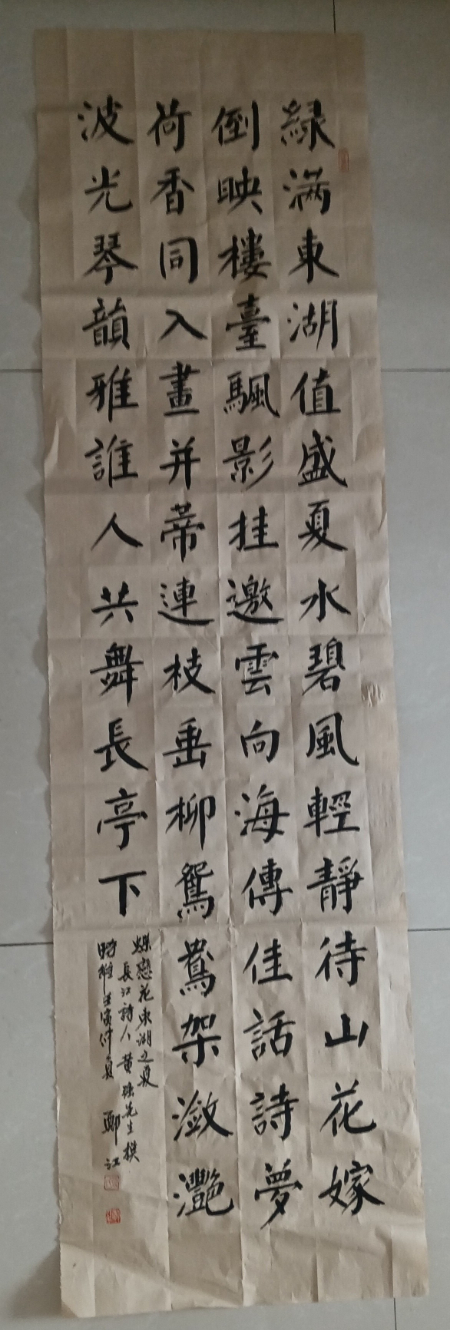 緑满東湖值盛夏水碧風輕靜待山花嫁
倒映樓臺颿影挂邀雲向海傳佳話詩夢
荷香同入畫并蒂連枝垂柳鴛鴦架潋灧
波光琴韻雅誰人共舞長亭下
蝶戀花東湖之夏
長江詩人黄強先生撰
時維壬寅仲夏 鄭江